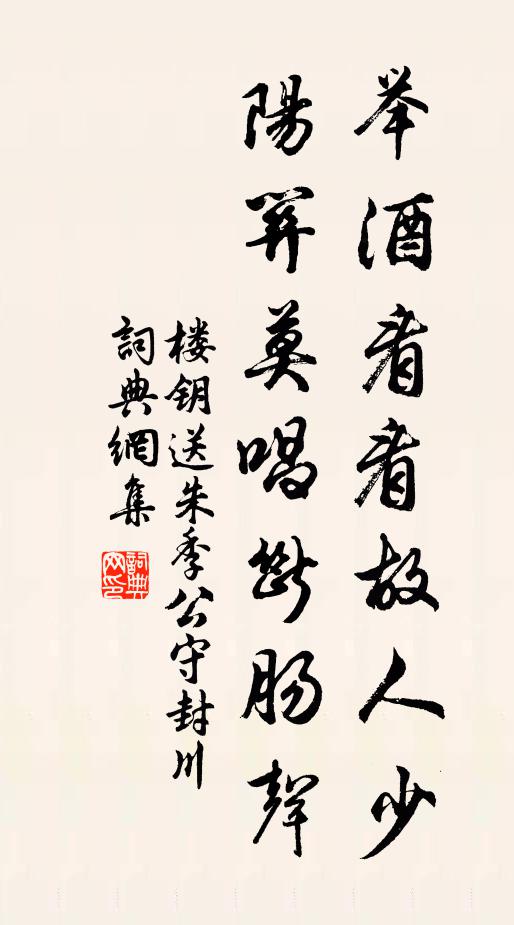 举酒看看故人少
陽関莫唱断肠聲
楼钥送朱季公守封川
詞典網集
詞典网印